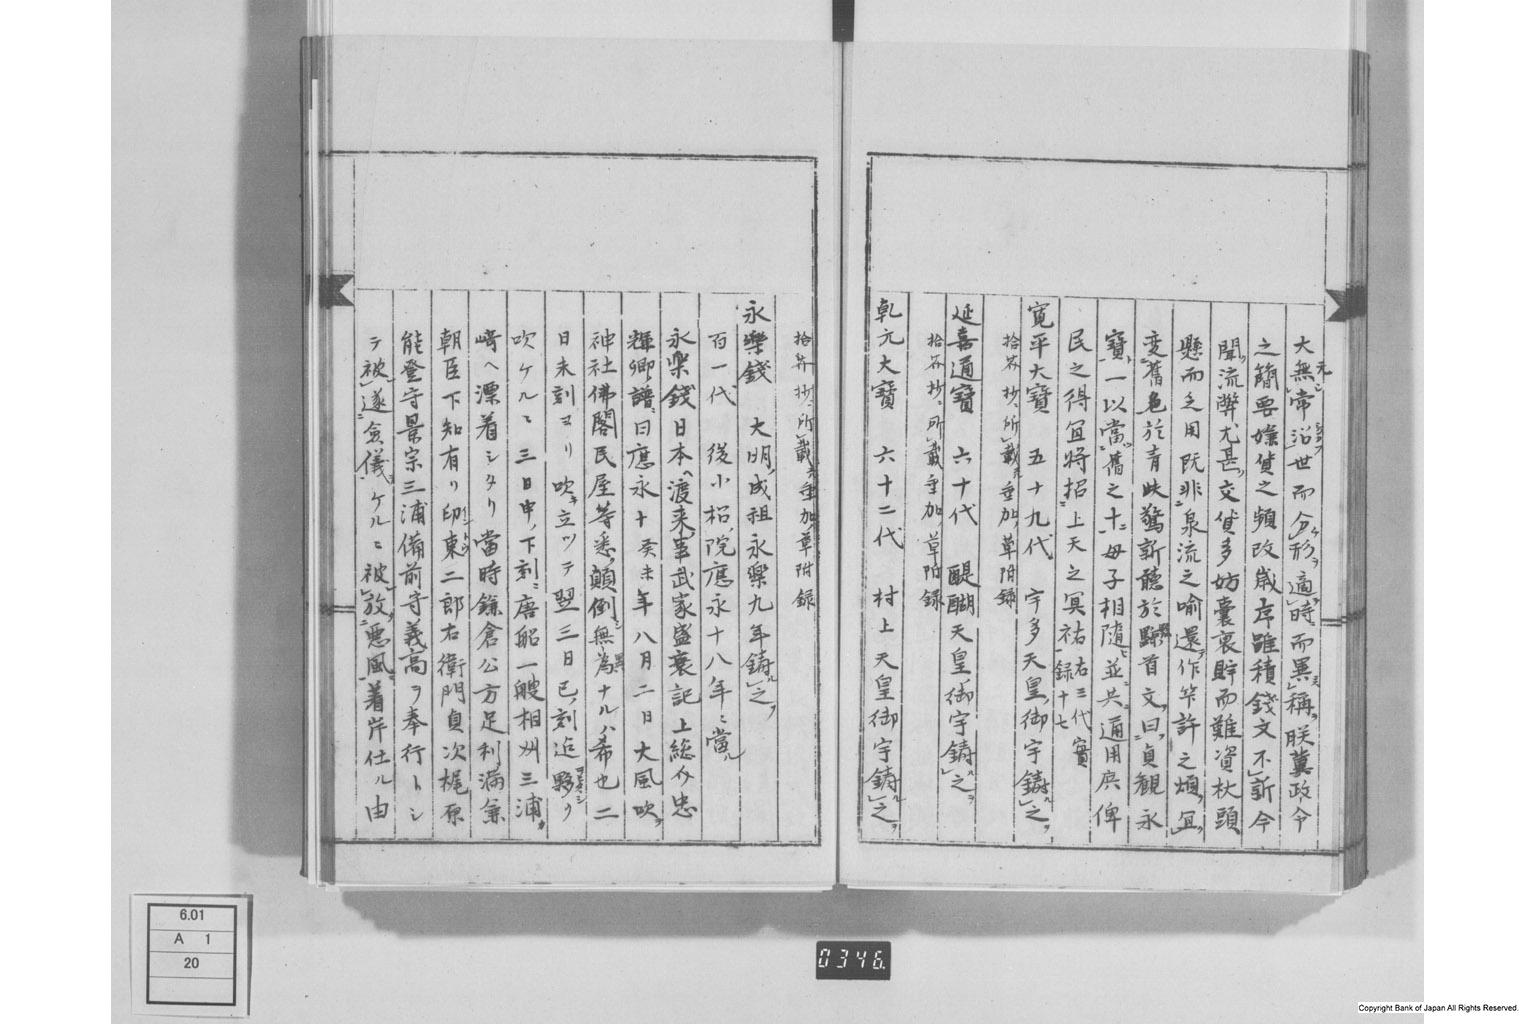 大無常沿世而分形適時而異稱朕冀政令
之簡要嫌貨之頻改歳序雖積錢文不新今
聞流弊尤甚交貨多妨嚢裏貯而難資杖頭
懸而乏用既非泉流之喻還作笇許之煩宜
變舊色於青蚨驚新聽於黔首文曰貞観永
寶一以當舊之十母子相隨並共通用庶俾
民之得宜将招上天之冥祐右三代實録十七
寛平大寶 五十九代 宇多天皇御宇鋳之
拾芥抄所載垂加草附録
延喜通寶 六十代 醍醐天皇御宇鋳之
拾芥抄所載垂加草附録
乾元大寶 六十二代 村上天皇御宇鋳之
拾芥抄所載垂加草附録
永樂錢 大明成祖永樂九年鋳之
百一代 後小松院應永十八年ニ當ル
永楽錢日本ヘ渡来ノ事武家盛衰記上総介忠
輝卿ノ譜ニ曰應永十癸未年八月二日大風吹テ
神社佛閣民屋等悉ク顛倒シ無為ナルハ希也二
日未刻ヨリ吹キ立ツテ翌三日巳ノ刻迄夥シク
吹ケルニ三日申ノ下刻ニ唐船一艘相州三浦
﨑ヘ漂着シタリ當時鎌倉公方足利満兼
朝臣下知有リ印東二郎右衛門貞次梶原
能登守景宗三浦備前守義高ヲ奉行トシ
テ被遂僉儀ケルニ被放悪風着岸仕ル由
6.01
A 1
20
0346
Copyright Bank of Japan All Rights Reserved.